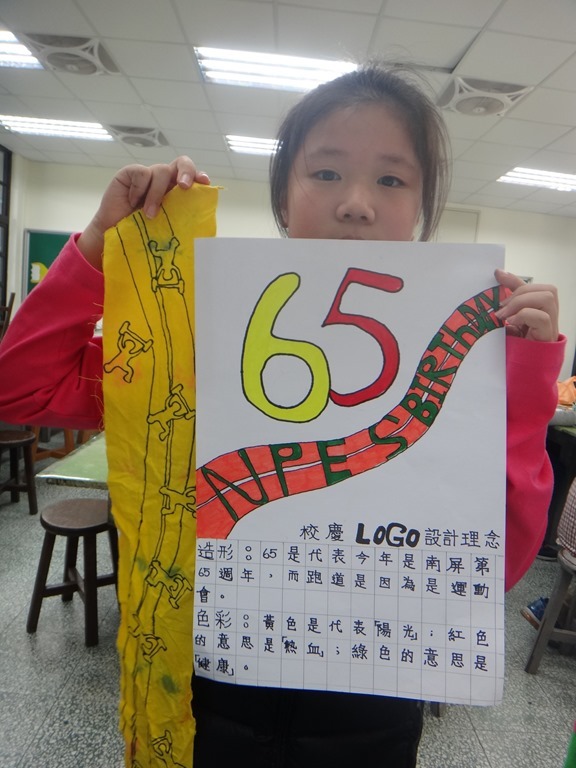 65
NPES BIRTHDAY
校慶 LOGO 設計理念
造形：65是代表今年是南屏第
65週年，而跑道是因為是運動
會。
色彩：黃色是代表「陽光」；紅色
的意思是「熱血」；綠色的意思是
「健康」。